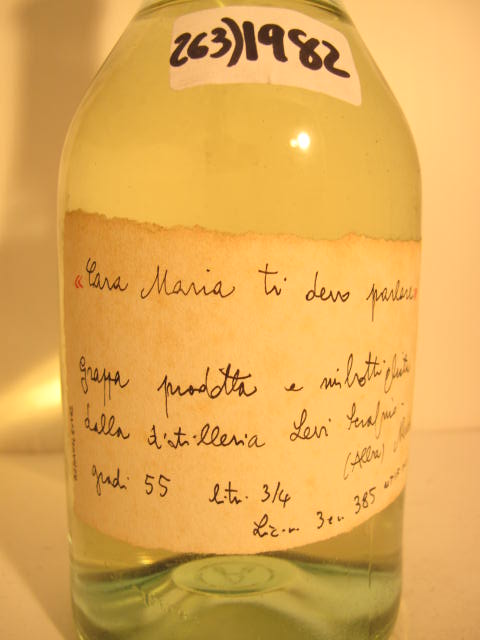 263) 1982
« Cara Maria ti devo parlare »
Grappa prodotta e imbottigliata
dalla distilleria Levi Serafino
(Alba)
gradi 55 litri 3/4
385